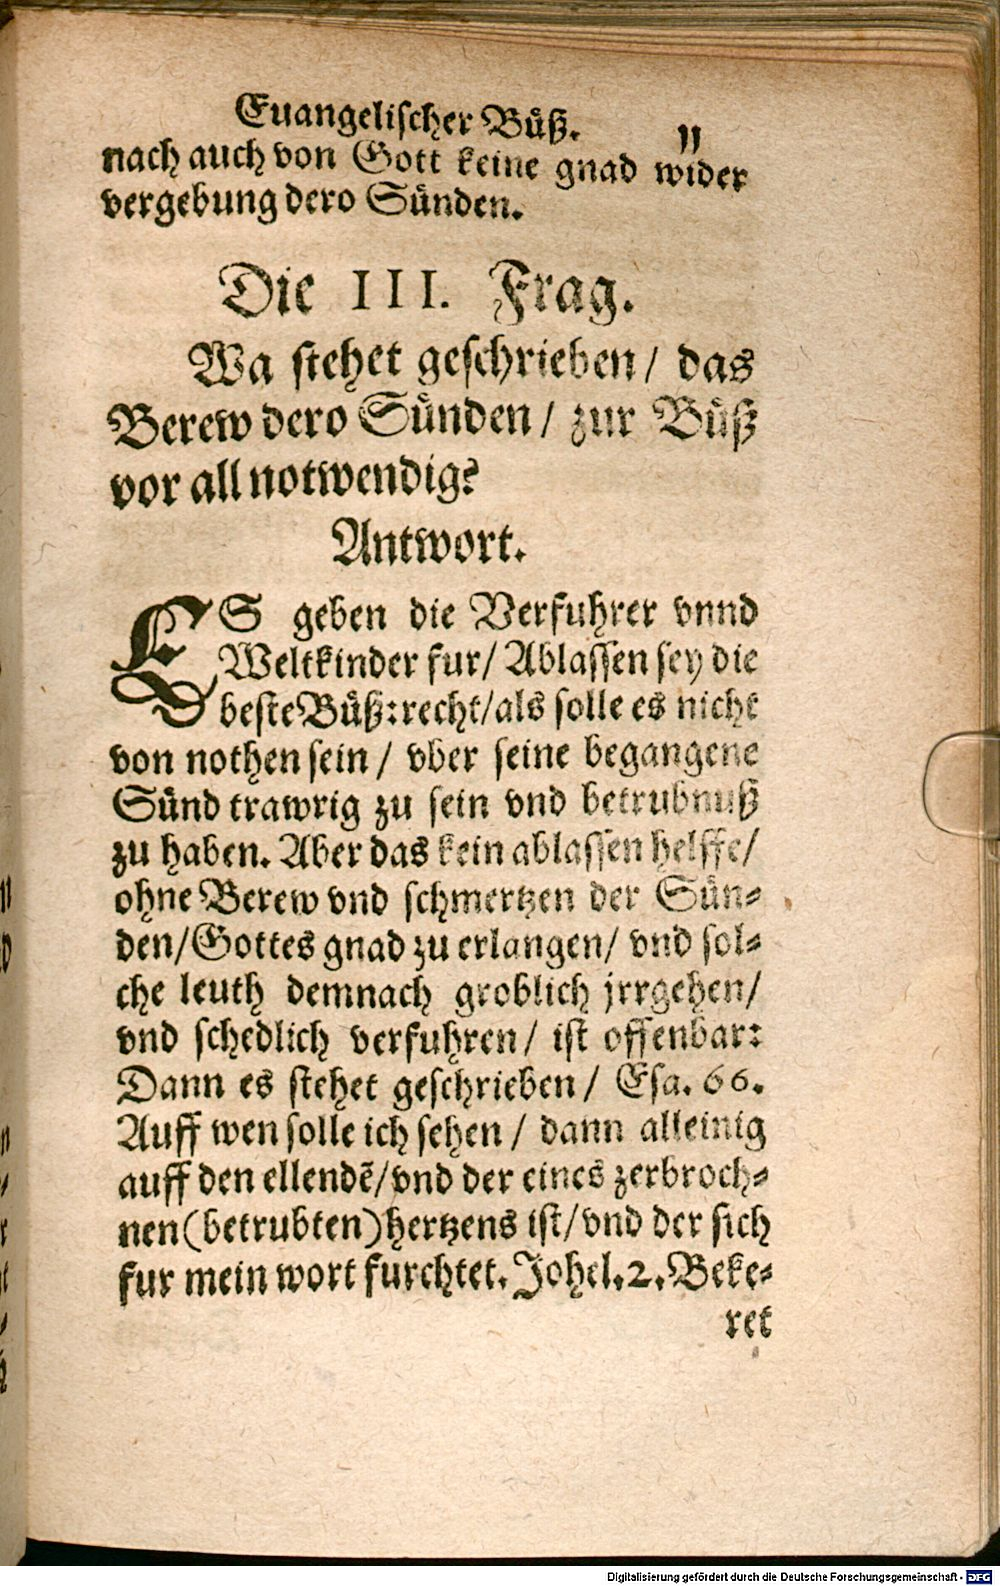 Euangelischer Büß. 11
nach auch von Gott keine gnad wider
vergebung dero Sünden.
Die III. Frag.
Wa stehet geschrieben / das
Berew dero Sünden / zur Büß
vor all notwendig?
Antwort.
ES geben die Verfuhrer vnnd
Weltkinder fur / Ablassen sey die
beste Büß: recht / als solle es nicht
von nothen sein / vber seine begangene
Sünd trawrig zu sein vnd betrubnuß
zu haben. Aber das kein ablassen helffe /
ohne Berew vnd schmertzen der Sün-
den / Gottes gnad zu erlangen / vnd sol-
che leuth demnach groblich jrrgehen /
vnd schedlich verfuhren / ist offenbar:
Dann es stehet geschrieben / Esa. 66.
Auff wen solle ich sehen / dann alleinig
auff den ellendẽ / vnd der eines zerbroch-
nen (betrubten) hertzens ist / vnd der sich
fur mein wort furchtet. Johel. 2. Beke-
ret
Digitalisierung gefördert durch die Deutsche Forschungsgemeinschaft - DFG